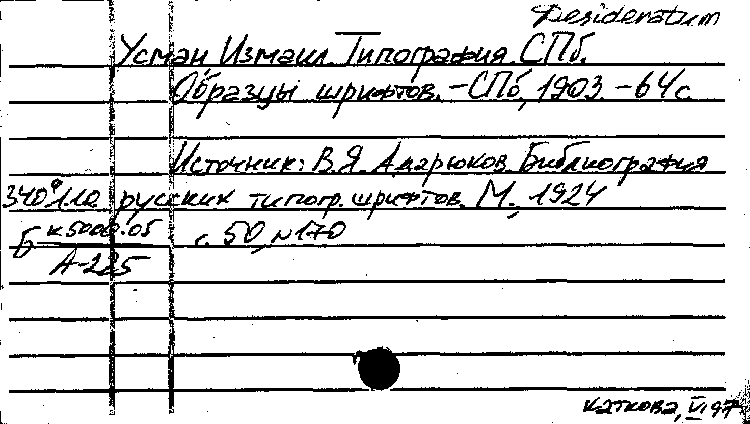 Desideratum
Усман Измаил. Типография. СПб.
Образцы шрифтов. - СПб, 1903. - 64 с.
Источник: В.Я. Адарюков. Библиография
русских типогр. шрифтов. М., 1924
Б к5000.05 с. 50, №170
А-225
Каткова, VI 97